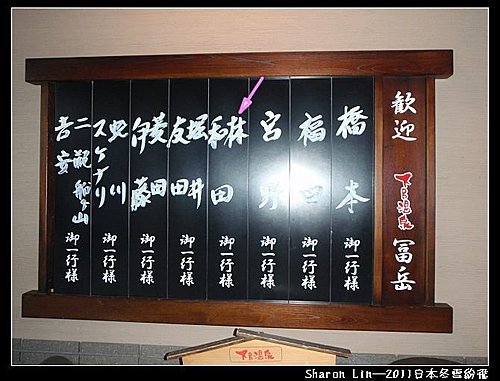 歓迎 下呂温泉 冨岳
橋本 御一行様
福田 御一行様
宮野 御一行様
林
和田 御一行様
堀井
友田 御一行様
菱田
伊藤 御一行様
蛇川
スケナリ 御一行様
二瓶 船ヶ山
吉安 御一行様
下呂温泉
Sharon Lin—2011日本冬雪紛飛